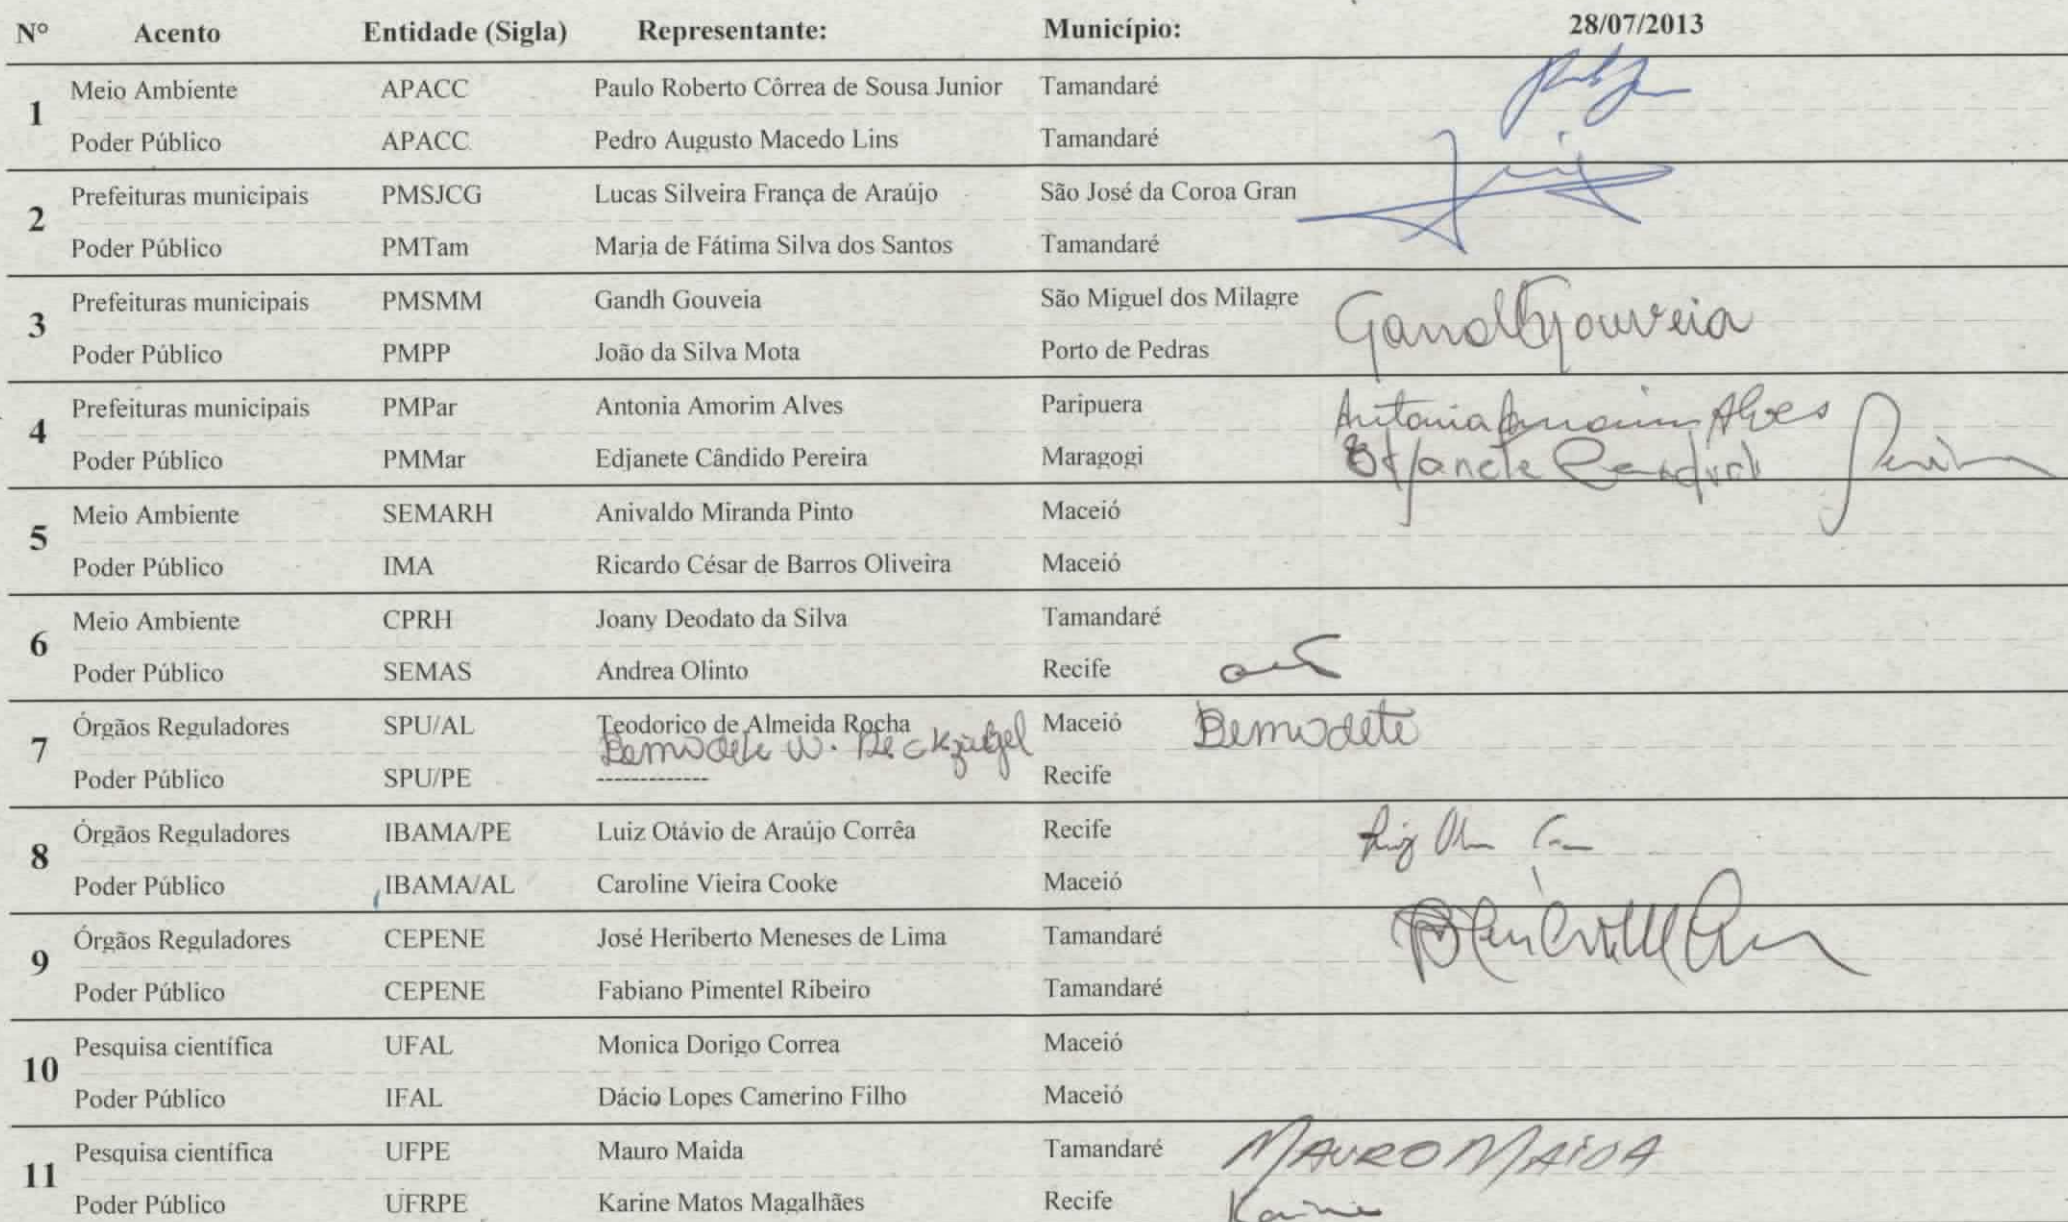 Nº Acento Entidade (Sigla) Representante: Município: 28/07/2013
1
Meio Ambiente APACC Paulo Roberto Côrrea de Sousa Junior Tamandaré
Poder Público APACC Pedro Augusto Macedo Lins Tamandaré
2
Prefeituras municipais PMSJCG Lucas Silveira França de Araújo São José da Coroa Gran
Poder Público PMTam Maria de Fátima Silva dos Santos Tamandaré
3
Prefeituras municipais PMSMM Gandh Gouveia São Miguel dos Milagre
Gandh Gouveia
Poder Público PMPP João da Silva Mota Porto de Pedras
4
Prefeituras municipais PMPar Antonia Amorim Alves Paripuera Antonia Amorim Alves
Poder Público PMMar Edjanete Cândido Pereira Maragogi Edjanete Candido Pereira
5
Meio Ambiente SEMARH Anivaldo Miranda Pinto Maceió
Poder Público IMA Ricardo César de Barros Oliveira Maceió
6
Meio Ambiente CPRH Joany Deodato da Silva Tamandaré
Poder Público SEMAS Andrea Olinto Recife
7
Órgãos Reguladores SPU/AL Teodorico de Almeida Rocha Maceió Bernadete
Bernadete W.
Poder Público SPU/PE ------------- Recife
8
Órgãos Reguladores IBAMA/PE Luiz Otávio de Araújo Corrêa Recife
Poder Público IBAMA/AL Caroline Vieira Cooke Maceió
9
Órgãos Reguladores CEPENE José Heriberto Meneses de Lima Tamandaré
Poder Público CEPENE Fabiano Pimentel Ribeiro Tamandaré
10
Pesquisa científica UFAL Monica Dorigo Correa Maceió
Poder Público IFAL Dácio Lopes Camerino Filho Maceió
11
Pesquisa científica UFPE Mauro Maida Tamandaré MAURO MAIDA
Poder Público UFRPE Karine Matos Magalhães Recife Karine